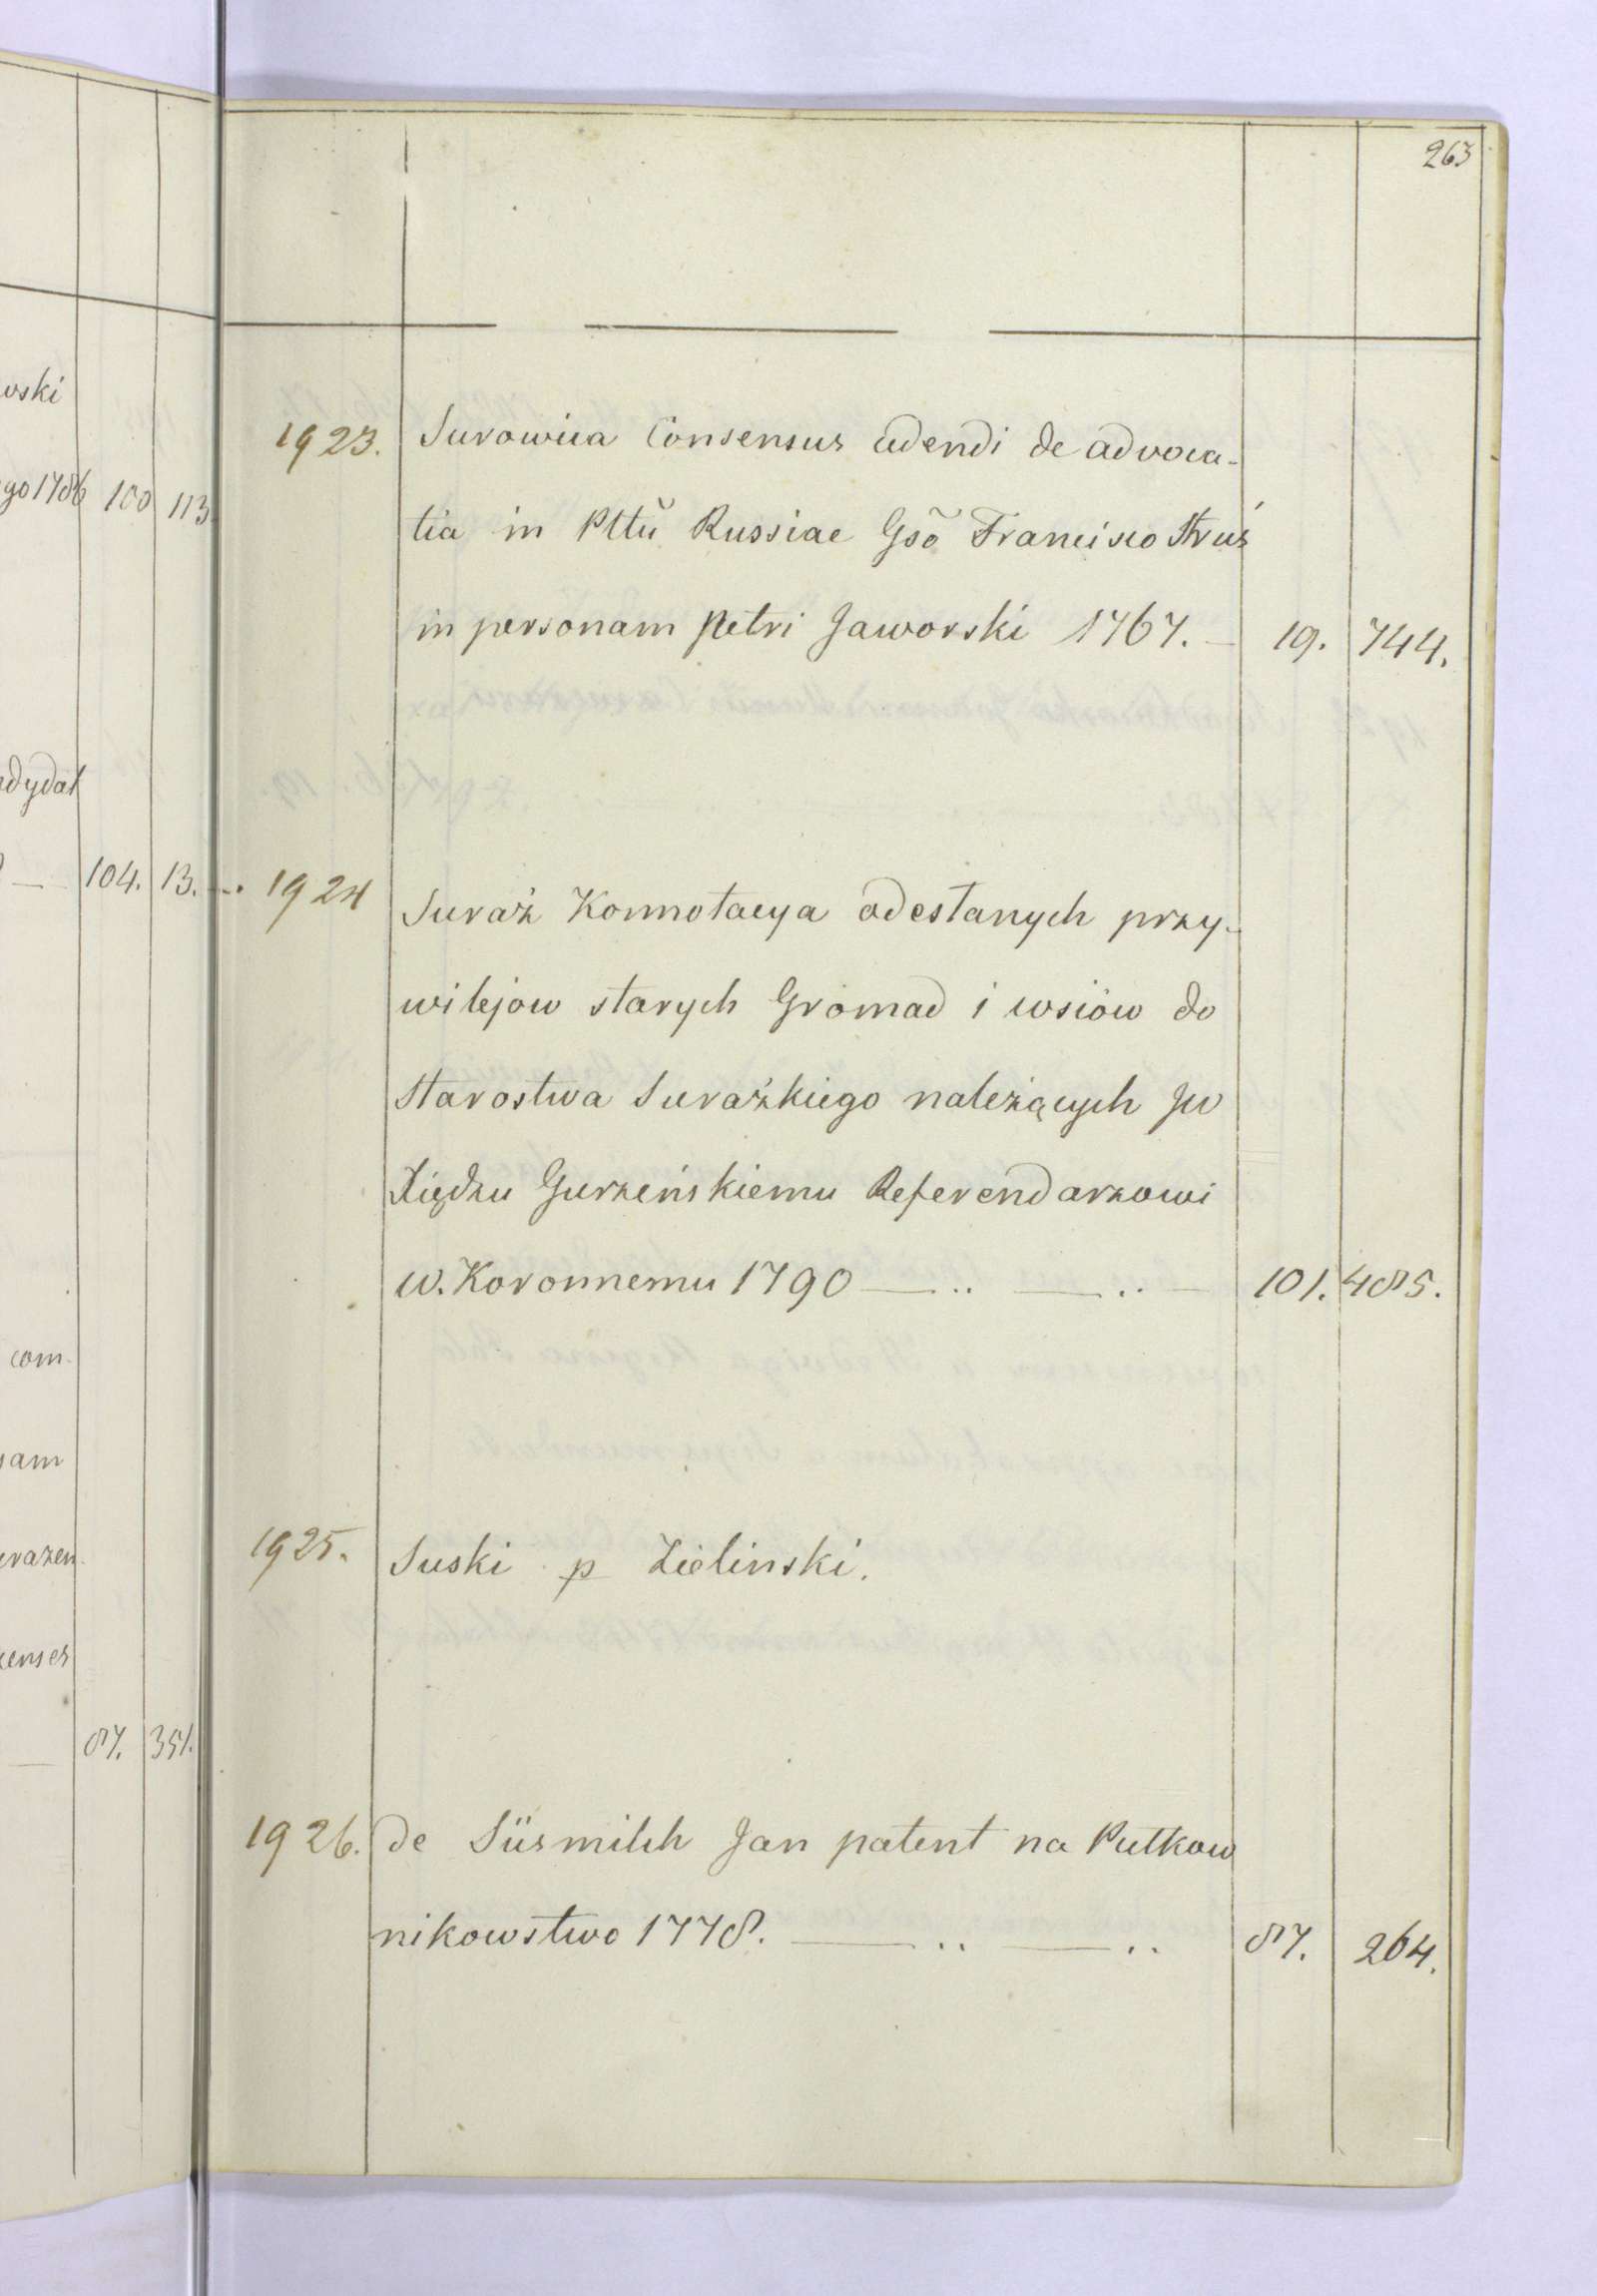 263
wski
go 1786 100 113.
ndydat
104. 13.
com.
sam
razen.
censes
87. 351.
1923. Surowica Consensus cedendi de advoca-
tia in Pttũ Russiae Gsõ Francisco Struś
in personam Petri Jaworski 1767. — 19. 744.
1924 Suraż Konnotacya odesłanych przy-
wilejow starych Gromad i wsiów do
Starostwa Surażkiego należących JW
Xiędzu Gurzeńskiemu Referendarzowi
W. Koronnemu 1790 — .. — .. — 101. 485.
1925. Suski p Zieliński.
1926. de Süsmilch Jan patent na Pułkow
nikowstwo 1778. — .. — .. 87. 264.